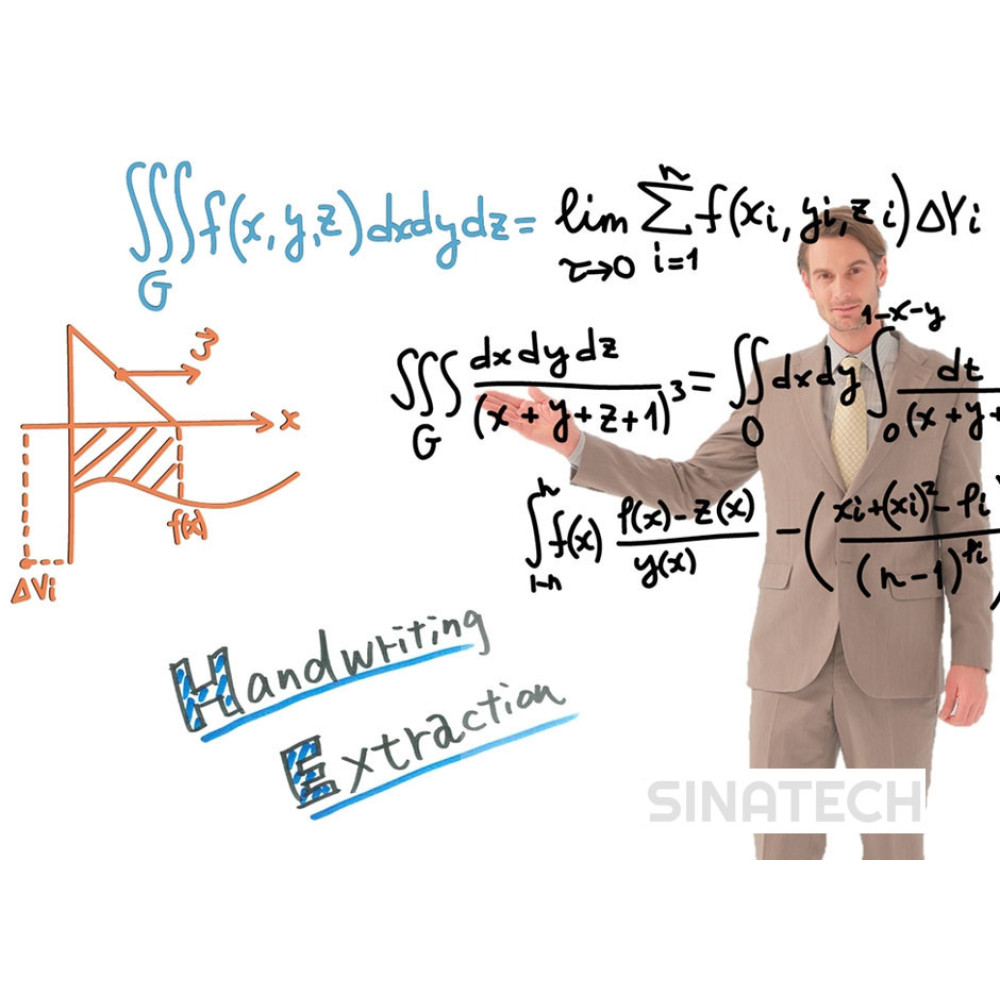 ∭_G f(x, y, z) dxdydz = lim_{τ→0} Σ_{i=1}^{n} f(xi, yi, zi) ΔVi
∭_G dxdydz / (x+y+z+1)^3 = ∬_0 dxdy ∫_0^{1-x-y} dt / (x+y+
3
x
f(x)
ΔVi
∫_{1-n}^{n} f(x) (f(x) - z(x)) / y(x) - ( (xi+(xi)^2 - fi) / (n-1)^{fi} )
Handwriting
Extraction
SINATECH